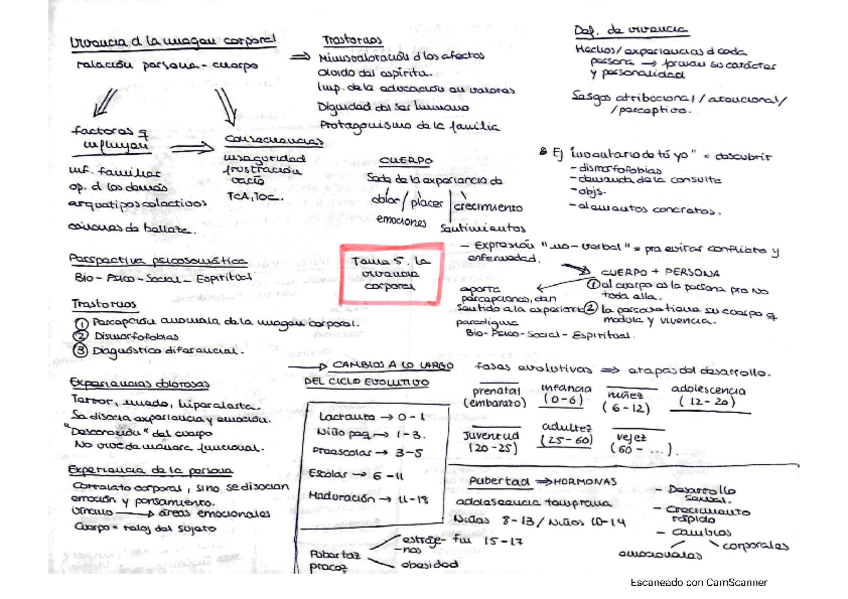 Vivencia d la imagen corporal
relación persona - cuerpo
factores q
influyen
inf. familiar
op. d los demás
arquetipos colectivos
cánones de belleza.
Consecuencias
inseguridad
frustración
vacío
TCA, TOC.
Trastornos
Minusvaloración d los afectos
olvido del espíritu.
Imp. de la educación en valores
Dignidad del ser humano
Protagonismo de la familia
Def. de vivencia
Hechos/experiencias d cada
persona → forman su carácter
y personalidad
Sesgos atribucional / atencional /
/ perceptivo.
CUERPO
Sede de la experiencia de
dolor / placer / crecimiento
emociones
sentimientos
Ej "inventario de tú yo" = descubrir
- dismorfofobias
- demanda de la consulta
- objs.
- elementos concretos.
- Expresión "no-verbal" = pra evitar conflicto y
enfermedad.
CUERPO + PERSONA
① el cuerpo es la persona pro no
toda ella.
② la persona tiene su cuerpo q
modula y vivencia.
aporta
percepciones, dan
sentido a la experiencia
paradigma
Bio-Psico-Social-Espiritual.
Tema 5. La
vivencia
corporal
Perspectiva psicosomática
Bio - Psico - Social - Espiritual
Trastornos
① Percepción anómala de la imagen corporal.
② Dismorfofobias
③ Diagnóstico diferencial.
Experiencias dolorosas
Terror, miedo, hiperalerta.
Se disocia experiencia y emoción.
"Desconexión" del cuerpo
No vive de manera funcional.
Experiencia de la persona
Correlato corporal, sino se disocian
emoción y pensamiento.
Vínculo → áreas emocionales
Cuerpo = reloj del sujeto
→ CAMBIOS A LO LARGO
DEL CICLO EVOLUTIVO
Lactante → 0 - 1
Niño peq → 1 - 3.
Preescolar → 3-5
Escolar → 6 - 11
Maduración → 11-18
fases evolutivas ⇒ etapas del desarrollo.
prenatal
(embarazo)
infancia
(0-6)
niñez
(6-12)
adolescencia
(12-20)
juventud
(20-25)
adultez
(25-60)
vejez
(60 - ...).
Pubertad ⇒ HORMONAS
adolescencia temprana
Niñas 8-13 / Niños 10-14
fin 15-17
- Desarrollo
sexual.
- Crecimiento
rápido
- Cambios
emocionales
corporales
Pubertad
precoz
estróge-
nos
obesidad
Escaneado con CamScanner